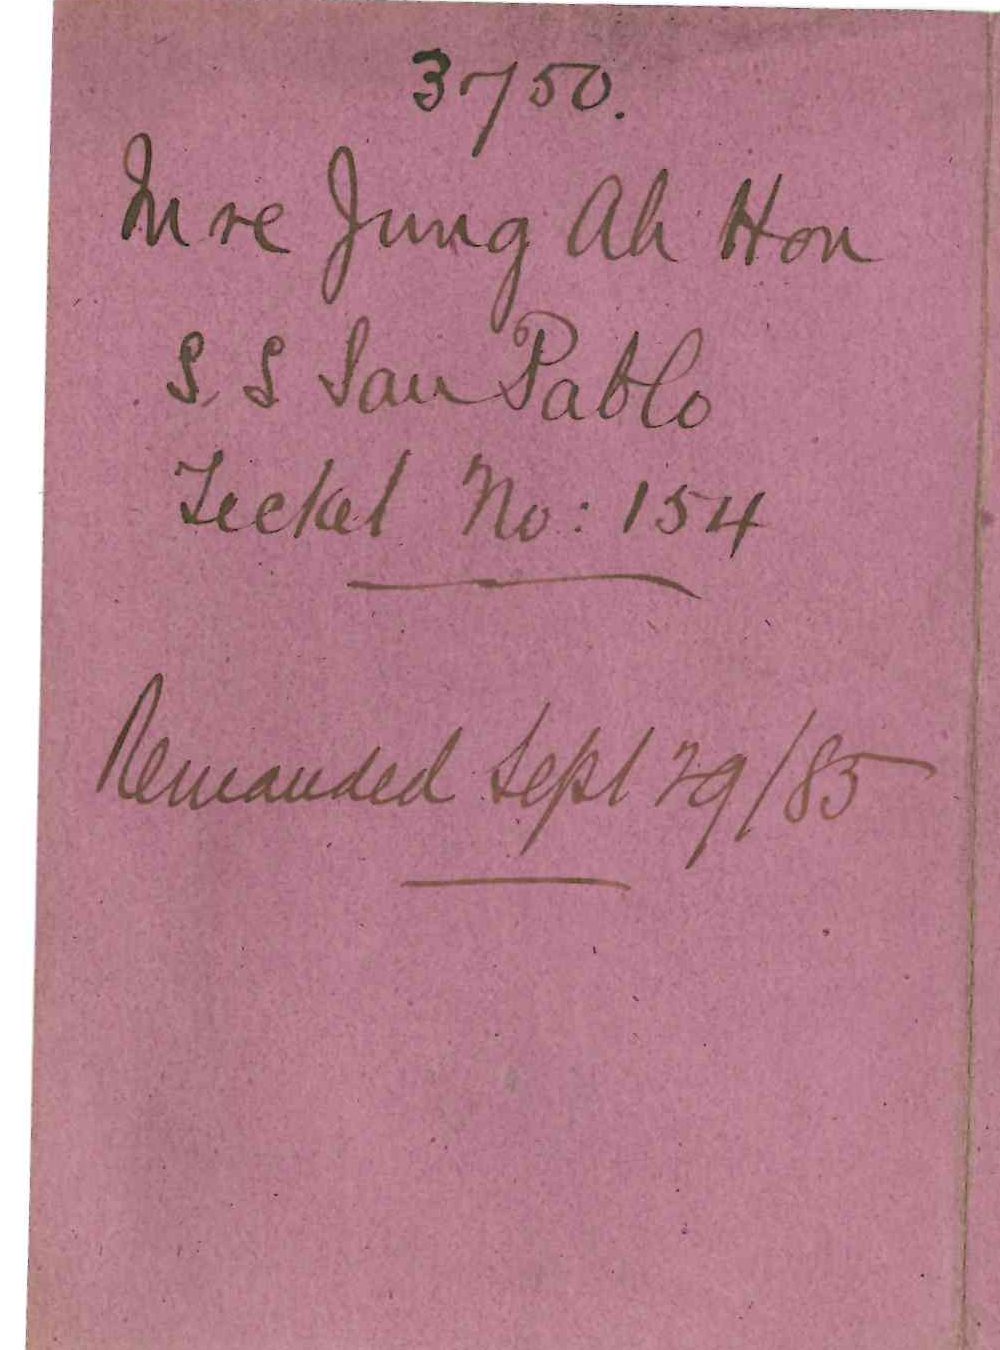 3750.
In re Jung Ah Hon
S. S San Pablo
Ticket No: 154
Remanded Sept 29/85